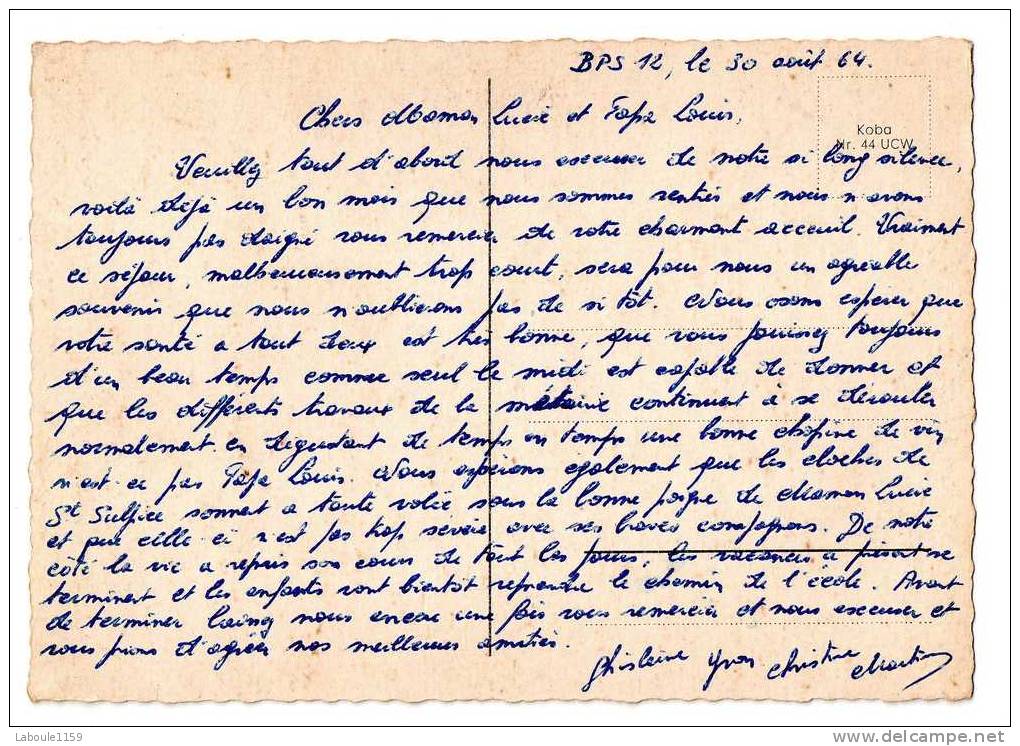 BPS 12, le 30 août 64.
Koba
Nr. 44 UCW
Chers Maman Lucie et Papa Louis,
Veuillez tout d'abord nous excuser de notre si long silence,
voilà déjà un bon mois que nous sommes rentrés et nous n'avons
toujours pas daigné vous remercier de votre charmant acceuil. Vraiment
ce séjour, malheureusement trop court, sera pour nous un agréable
souvenir que nous n'oublierons pas de si tôt. Nous osons espérer que
votre santé a tout deux est très bonne, que vous jouissez toujours
d'un beau temps comme seul le midi est capable de donner et
que les différents travaux de la mairie continuent à se dérouler
normalement en dégustant de temps en temps une bonne chopine de vin
n'est ce pas Papa Louis. Nous espérons également que les cloches de
St Sulpice sonnent a toute volée sous la bonne poigne de Maman Lucie
et que celle ci n'est pas trop sevère avec ses braves compagnons. De notre
côté la vie a repris son cours de tout les jours, les vacances à présent se
terminent et les enfants vont bientôt reprendre le chemin de l'école. Avant
de terminer nous encore une fois vous remercier et nous excuser et
vous prions d'agréer nos meilleures amitiés.
Ghislaine Yvon Christine Martine
Laboule1159
delcampe.net